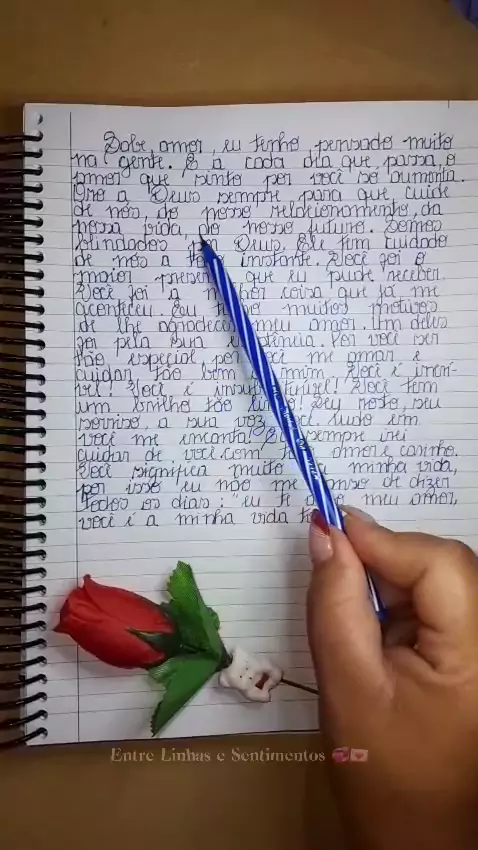 Sabe, amor, eu tenho pensado muito
na gente. E a cada dia que passa, o
amor que sinto por você só aumenta.
Oro a Deus sempre para que cuide
de nós, do nosso relacionamento, da
nossa vida, do nosso futuro. Somos
blindados por Deus. Ele tem cuidado
de nós a instante. Você foi o
maior presente que eu pude receber.
Você foi a melhor coisa que já me
aconteceu. Eu tenho muitos motivos
de lhe agradecer, meu amor. Um deles
foi pela sua existência. Por você ser
tão especial, por você me amar e
cuidar tão bem de mim. Você é incrí-
vel! Você é insubstituível! Você tem
um brilho tão lindo! Seu rosto, seu
sorriso, a sua voz, tudo em
você me encanta! Eu sempre irei
cuidar de você com amor e carinho.
Você significa muito minha vida,
por isso eu não me canso de dizer
todos os dias: "eu te amo meu amor,
você é a minha vida
Entre Linhas e Sentimentos